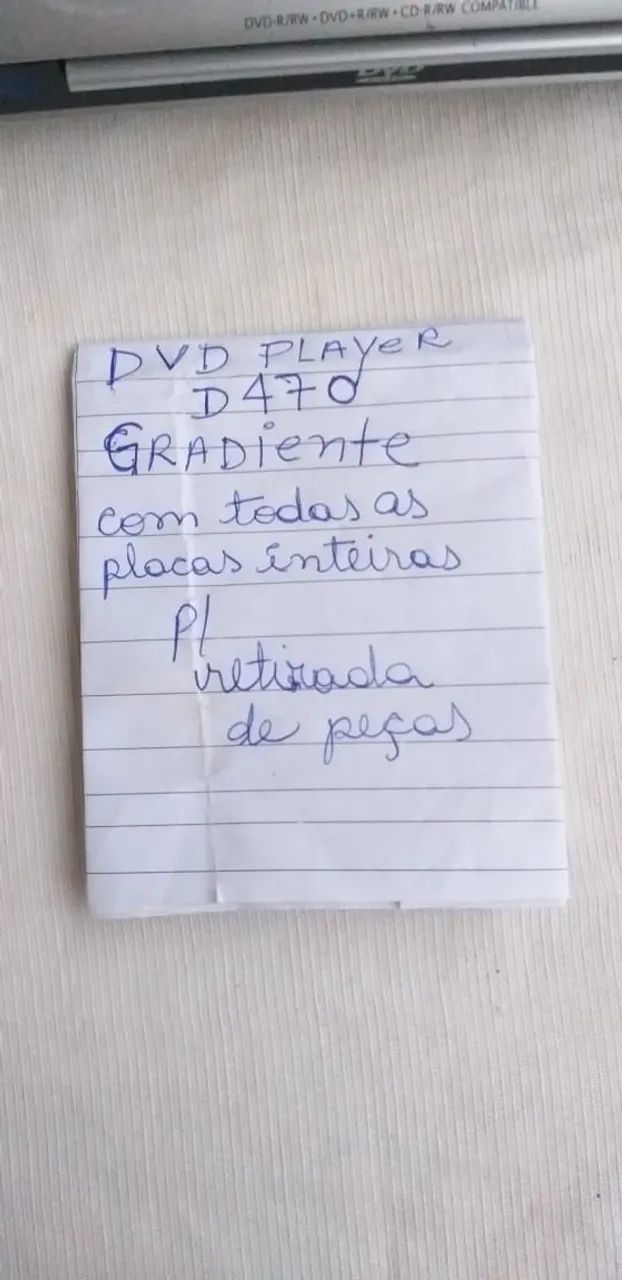 DVD-R/RW • DVD+R/RW • CD-R/RW COMPATIBLE
DVD
DVD PLAYeR
D470
GRADiente
com todas as
placas inteiras
p/
retirada
de peças